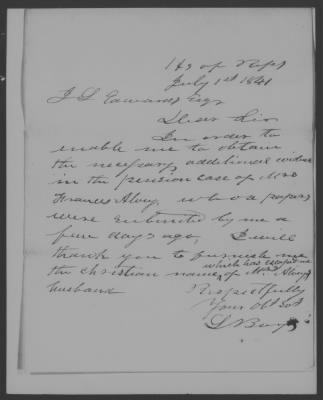 Hs of Reps
July 1st 1841
J L Edwards Esqr
Dear Sir
In order to
enable me to obtain
the necessary additional evidence
in the pension case of Mrs
Frances Alvey, whose papers
were submitted by me a
few days ago, I will
thank you to furnish me
which has escaped me
the christian name of Mrs Alvey's
husband
Respectfully
Your Obt Svt
L Boyd